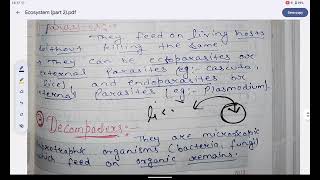 Ecosystem (part 2).pdf
Parasites:-
They feed on living hosts
without killing the same.
→ They can be ectoparasites or
external Parasites (eg:- cascuta,
lice), and Endoparasites or
internal Parasites (eg:- Plasmodium).
Decomposers:-
They are microscopic
saprotrophic organisms (bacteria, fungi)
which feed on organic remains.